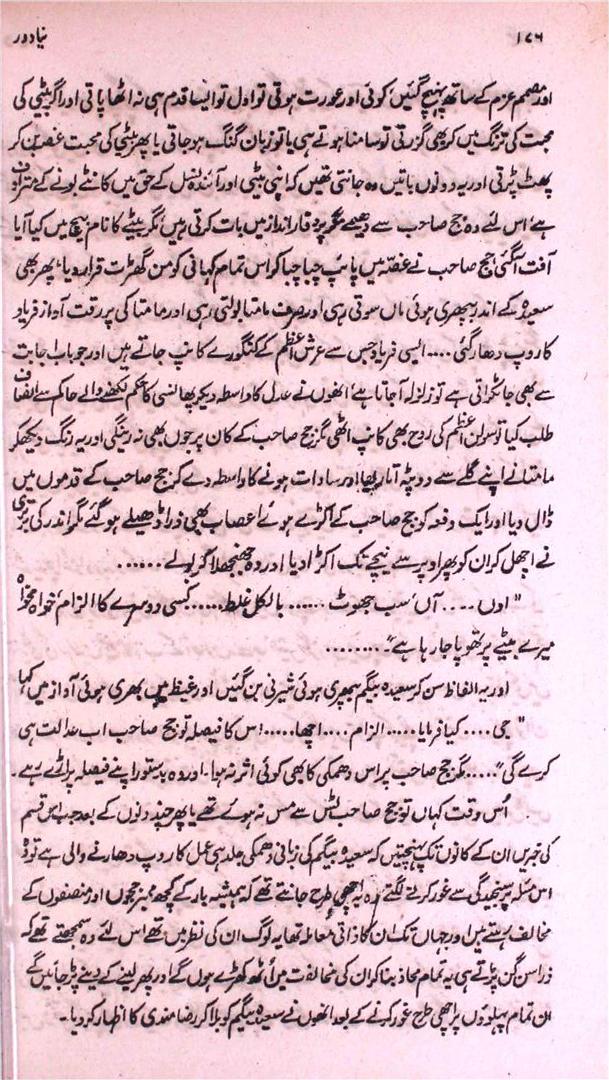 ۱۷۶
نیا دور
اور مصمم عزم کے ساتھ پہنچ گئیں کوئی اور عورت ہوتی تو اول تو ایسا قدم ہی نہ اٹھا پاتی اور اگر بیٹی کی
محبت کی ترنگ میں کر بھی گزرتی تو سامنا ہوتے ہی یا تو زبان گنگ ہو جاتی یا پھر بیٹی کی محبت غصہ بن کر
پھٹ پڑتی اور یہ دونوں باتیں وہ جانتی تھیں کہ اپنی بیٹی اور آئندہ نسل کے حق میں کانٹے بونے کے مترادف
ہے اس لئے وہ جج صاحب سے دھیمے مگر پر وقار انداز میں بات کرتی رہیں مگر بیٹے کا نام بیچ میں کیا آیا
آفت آگئی جج صاحب نے غصّہ میں پائپ چبا چبا کو اس تمام کہانی کو من گھڑت قرار دیا، پھر بھی
سعیدہ کے اندر بپھری ہوئی ماں سوتی رہی اور صرف مامتا بولتی رہی اور مامتا کی پر رقت آواز فریاد
کا روپ دھار گئی .... ایسی فریاد جس سے عرش اعظم کے کنگورے کانپ جاتے ہیں اور جو باب اجابت
سے بھی جا ٹکراتی ہے تو زلزلہ آ جاتا ہے، انھوں نے عدل کا واسطہ دیکر پھانسی کا حکم لکھنے والے حاکم سے انصاف
طلب کیا تو سولن اعظم کی روح بھی کانپ اٹھی مگر جج صاحب کے کان پر جوں بھی نہ رینگی اور یہ رنگ دیکھ کر
مامتا نے اپنے گلے سے دوپٹہ اتار لیا اور سادات ہونے کا واسطہ دے کر جج صاحب کے قدموں میں
ڈال دیا اور ایک دفعہ کو جج صاحب کے اکڑے ہوئے اعصاب بھی ذرا ڈھیلے ہو گئے مگر اندر کی برتری
نے اچھل کر ان کو پھر اوپر سے نیچے تک اکڑا دیا اور وہ جھنجھلا کر بولے ......
" اوں .... آں، سب جھوٹ ...... بالکل غلط ...... کسی دوسرے کا الزام، خواہ مخواہ
میرے بیٹے پر تھوپا جا رہا ہے"۔........
اور یہ الفاظ سن کر سعیدہ بیگم بپھری ہوئی شیرنی بن گئیں اور غیظ میں بھری ہوئی آواز میں کہا
" جی .... کیا فرمایا ..... الزام .... اچھا ..... اس کا فیصلہ تو جج صاحب اب عدالت ہی
کرے گی" ..... مگر جج صاحب پر اس دھمکی کا بھی کوئی اثر نہ ہوا۔ اور وہ بدستور اپنے فیصلہ پر اڑے رہے۔
اُس وقت کہاں تو جج صاحب ٹس سے مس نہ ہوئے تھے یا پھر چند دنوں کے بعد جب اس قسم
کی خبریں ان کے کانوں تک پہنچیں کہ سعیدہ بیگم کی زبانی دھمکی جلد ہی عمل کا روپ دھارنے والی ہے تو وہ
اس مسئلہ پر سنجیدگی سے غور کرنے لگے، وہ یہ اچھی طرح جانتے تھے کہ ہمیشہ بار کے کچھ ممبر ججوں اور منصفوں کے
مخالف رہتے ہیں اور جہاں تک ان کا ذاتی معاملہ تھا یہ لوگ ان کی نظر میں تھے اس لئے وہ سمجھتے تھے کہ
ذرا سن گن پڑتے ہی یہ تمام محاذ بنا کر ان کی مخالفت میں اُٹھ کھڑے ہوں گے اور پھر لینے کے دینے پڑ جائیں گے
ان تمام پہلوؤں پر اچھی طرح غور کرنے کے بعد انھوں نے سعیدہ بیگم کو بلا کر رضا مندی کا اظہار کر دیا۔